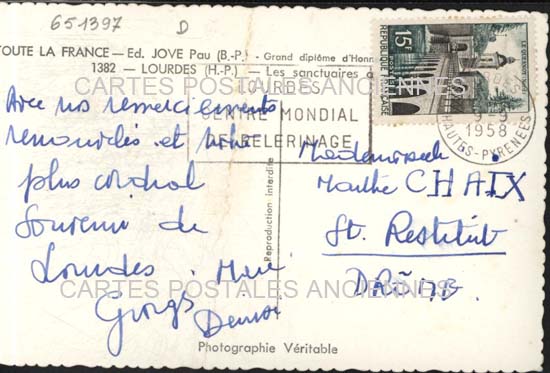 651397 D
TOUTE LA FRANCE — Ed. JOVE Pau (B.-P.) - Grand diplôme d'Honn
1382 — LOURDES (H.-P.) — Les sanctuaires
CARTES POSTALES ANCIENNES
LOURDES
CENTRE MONDIAL
DE PELERINAGE
15F
REPUBLIQUE FRANÇAISE
LE QUESNOY
1958
HAUTES-PYRENEES
Avec nos remerciements
renouvelés et notre
plus cordial
souvenir de
Lourdes. Marie
Georges Denise
Reproduction interdite
Mademoiselle
Marthe CHAIX
St. Restitut
DRÔME
CARTES POSTALES ANCIENNES
Photographie Véritable